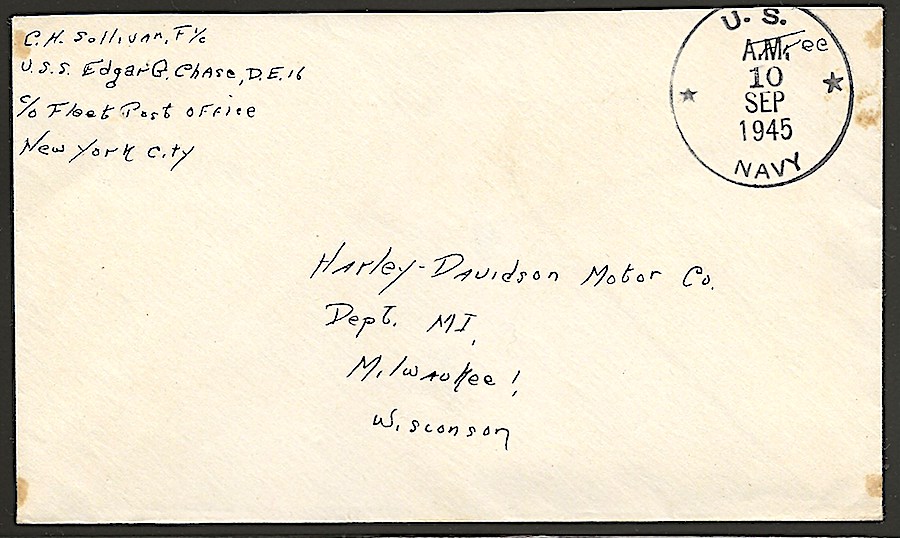 C.H. Sullivan, F 1/c
U.S.S. Edgar G. Chase, D.E. 16
c/o Fleet Post Office
New York City
U. S.
Free
A.M.
10
SEP
1945
NAVY
Harley-Davidson Motor Co.
Dept. MI,
Milwaukee 1,
Wisconson